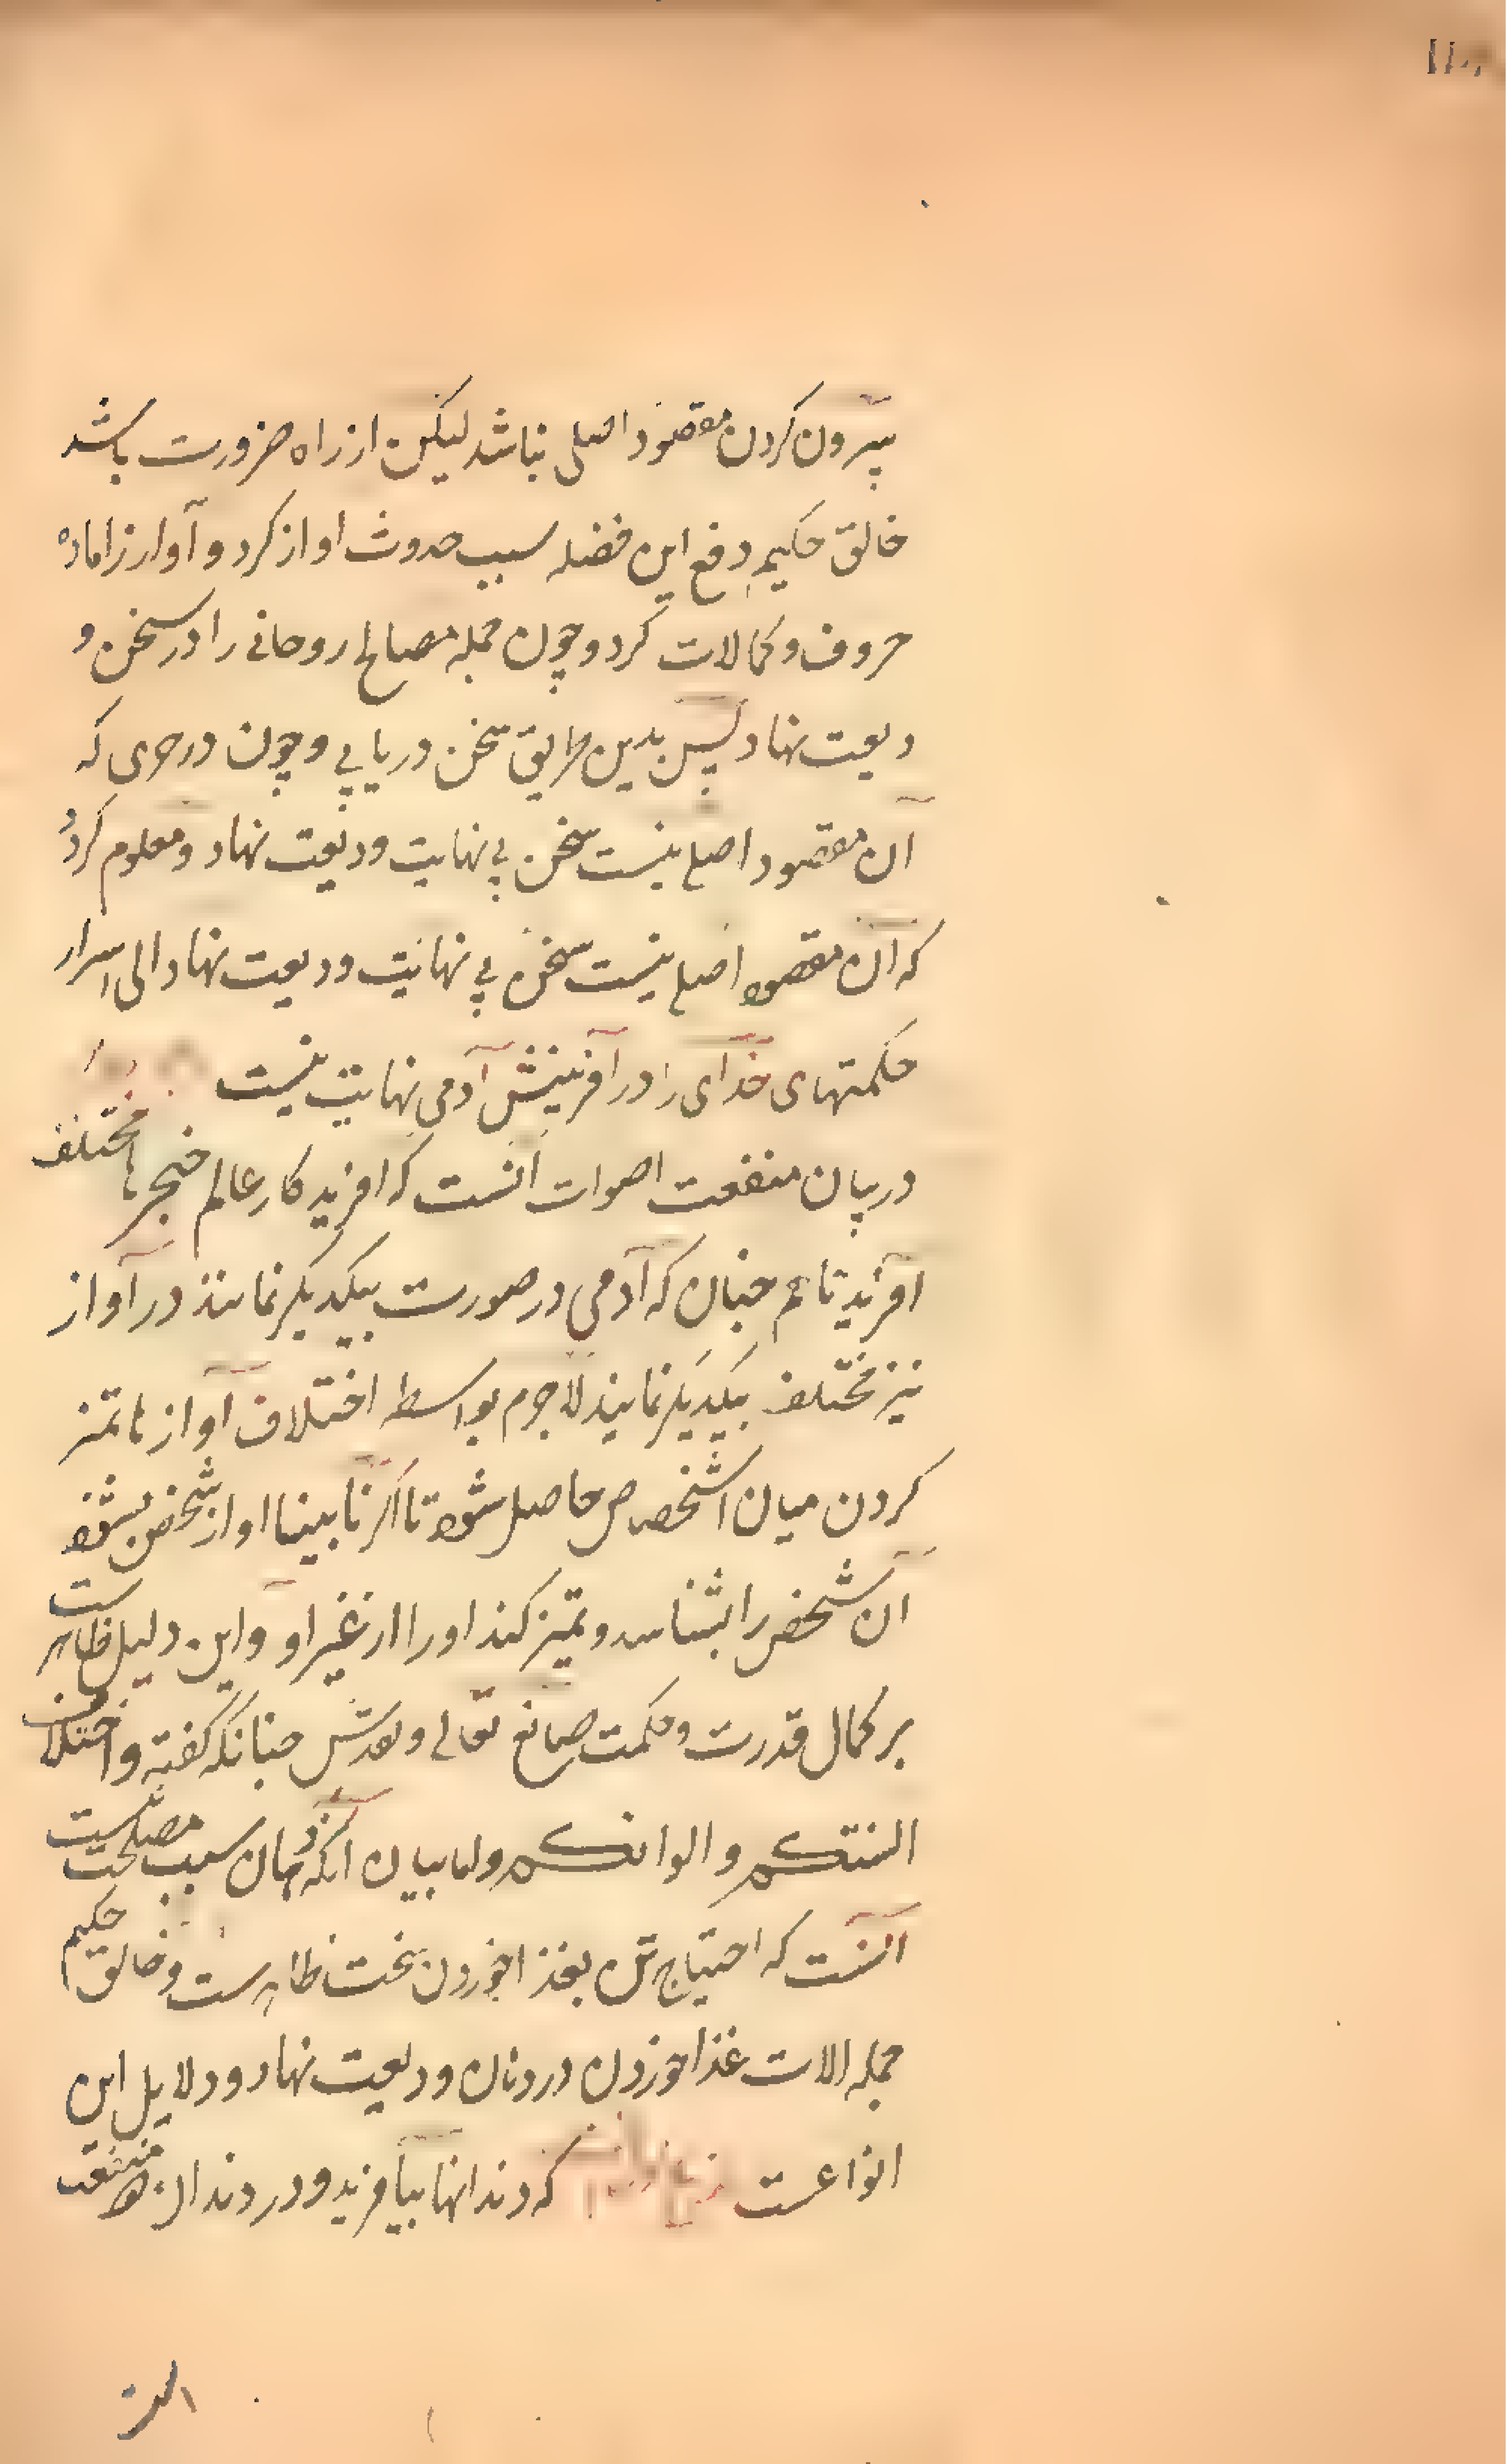 بیرون کردن مقصود اصلی نباشد لیکن از راه ضرورت باشد
خالق حکیم دفع این فضله سبب حدوث اواز کرد و آواز را ماده
حروف و کمالات کرد و چون جمله مصالح روحانی را در سخن و
دیعت نهاد پس بدین طریق سخن دریابی و چون در حری که
آن مقصود اصلی نیست سخن بی نهایت ودیعت نهاد و معلوم کرد
که آن مقصود اصلی نیست سخن بی نهایت ودیعت نهاد الی اسرار
حکمتهای خدای را در آفرینش آدمی نهایت نیست
در بیان منفعت اصوات آنست که افریدکار عالم خنجرها مختلف
آفرید تا هم جنان که آدمی در صورت بیکدیکر نمانند در آواز
نیز مختلف بیکدیکر نمایند لاجرم بواسطه اختلاف آوازها تمیز
کردن میان اشخصاص حاصل شود تا اکر نابینا اواز شخص بشنود
آن شخص را بشناسد و تمیز کند او را از غیر او و این دلیل ظاهرست
بر کمال قدرت و حکمت صانع تعالی و تقدس جنانکه کفته و اختلاف
السنتکم و الوانکم و اما بیان آنکه دهان سبب مصلحتست
آنست که احتیاج تن بغذا خوردن سخت ظاهرست و خالق حکیم
جمله الات غذا خوردن در دهان ودیعت نهاد و دلایل این
انواعست که دندانها بیافرید و در دندان منفعت